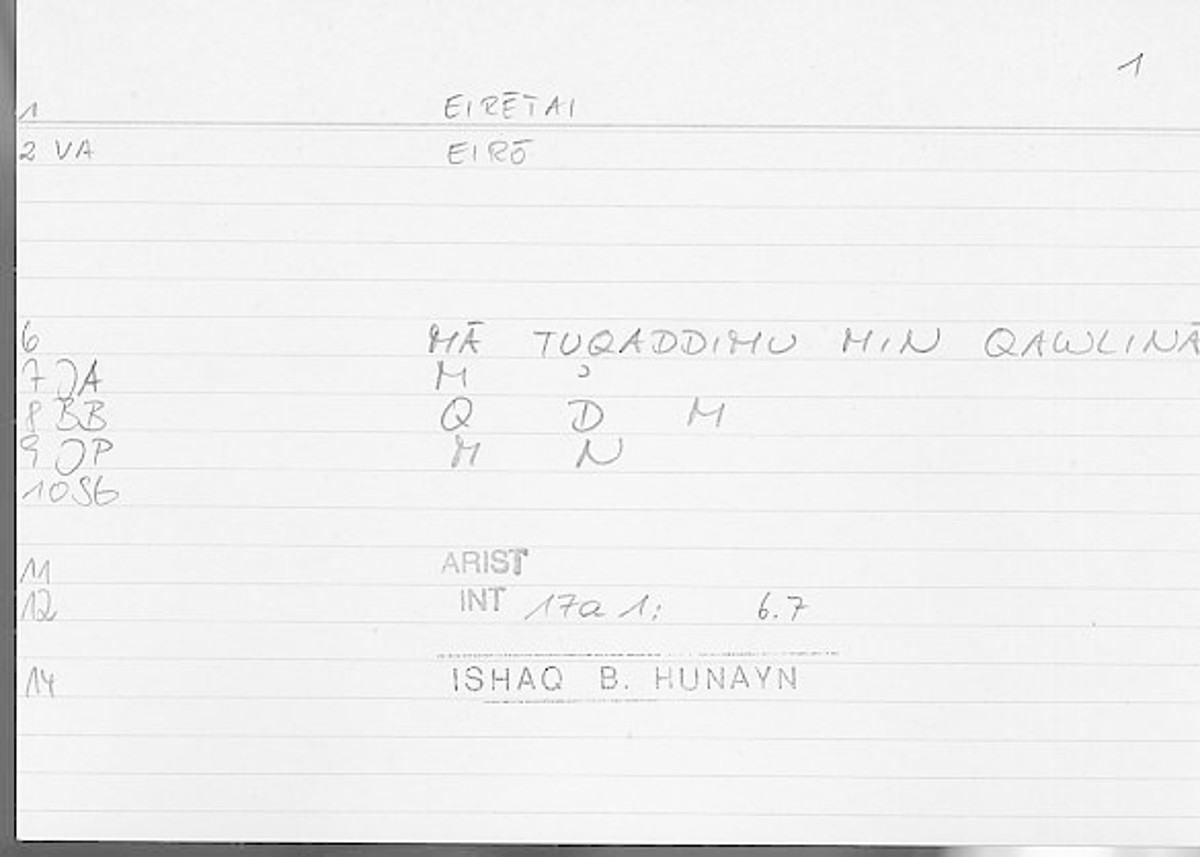 1
1 EIRĒTAI
2 VA EIRŌ
6 MĀ TUQADDIMU MIN QAWLINĀ
7 JA M ᵓ
8 BB Q D M
9 JP M N
10 SG
11 ARIST
12 INT 17a 1: 6.7
14 ISHAQ B. HUNAYN